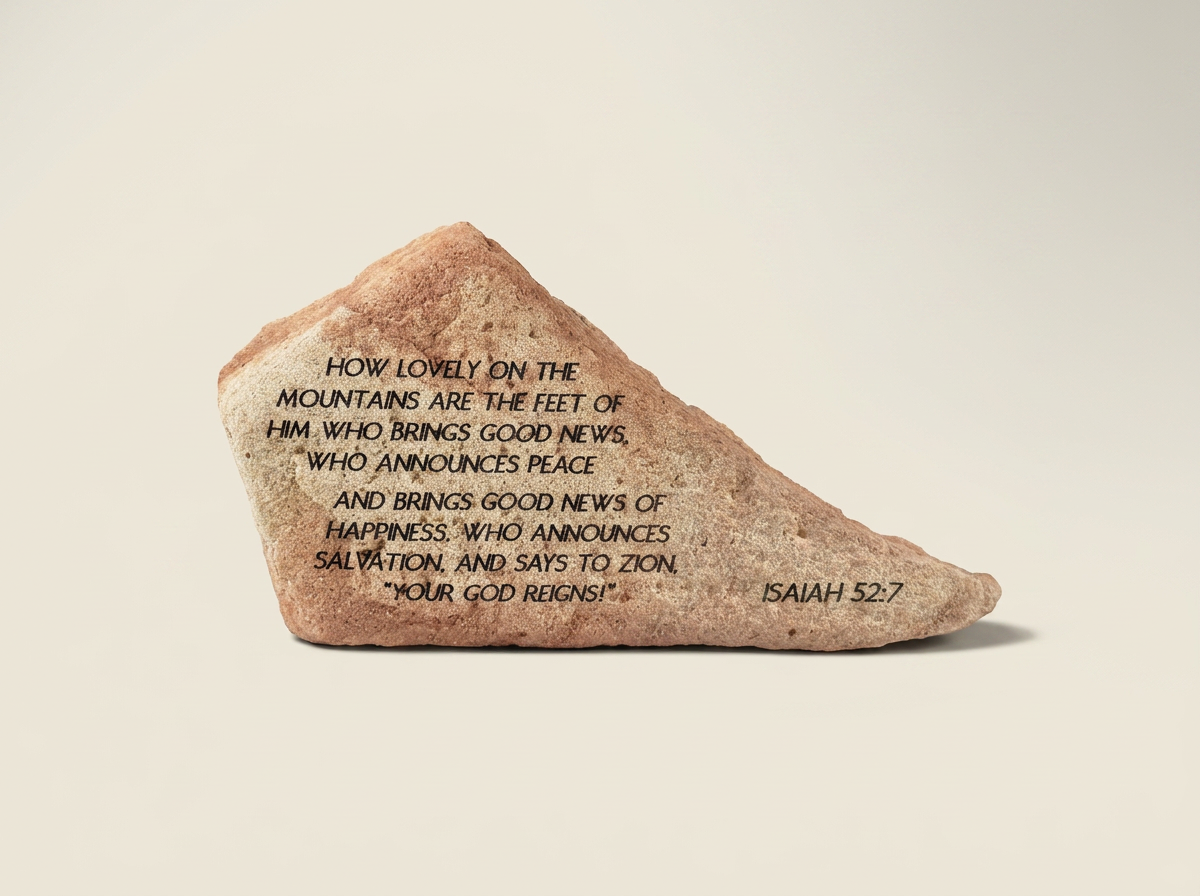 HOW LOVELY ON THE
MOUNTAINS ARE THE FEET OF
HIM WHO BRINGS GOOD NEWS,
WHO ANNOUNCES PEACE
AND BRINGS GOOD NEWS OF
HAPPINESS, WHO ANNOUNCES
SALVATION, AND SAYS TO ZION,
"YOUR GOD REIGNS!"
ISAIAH 52:7